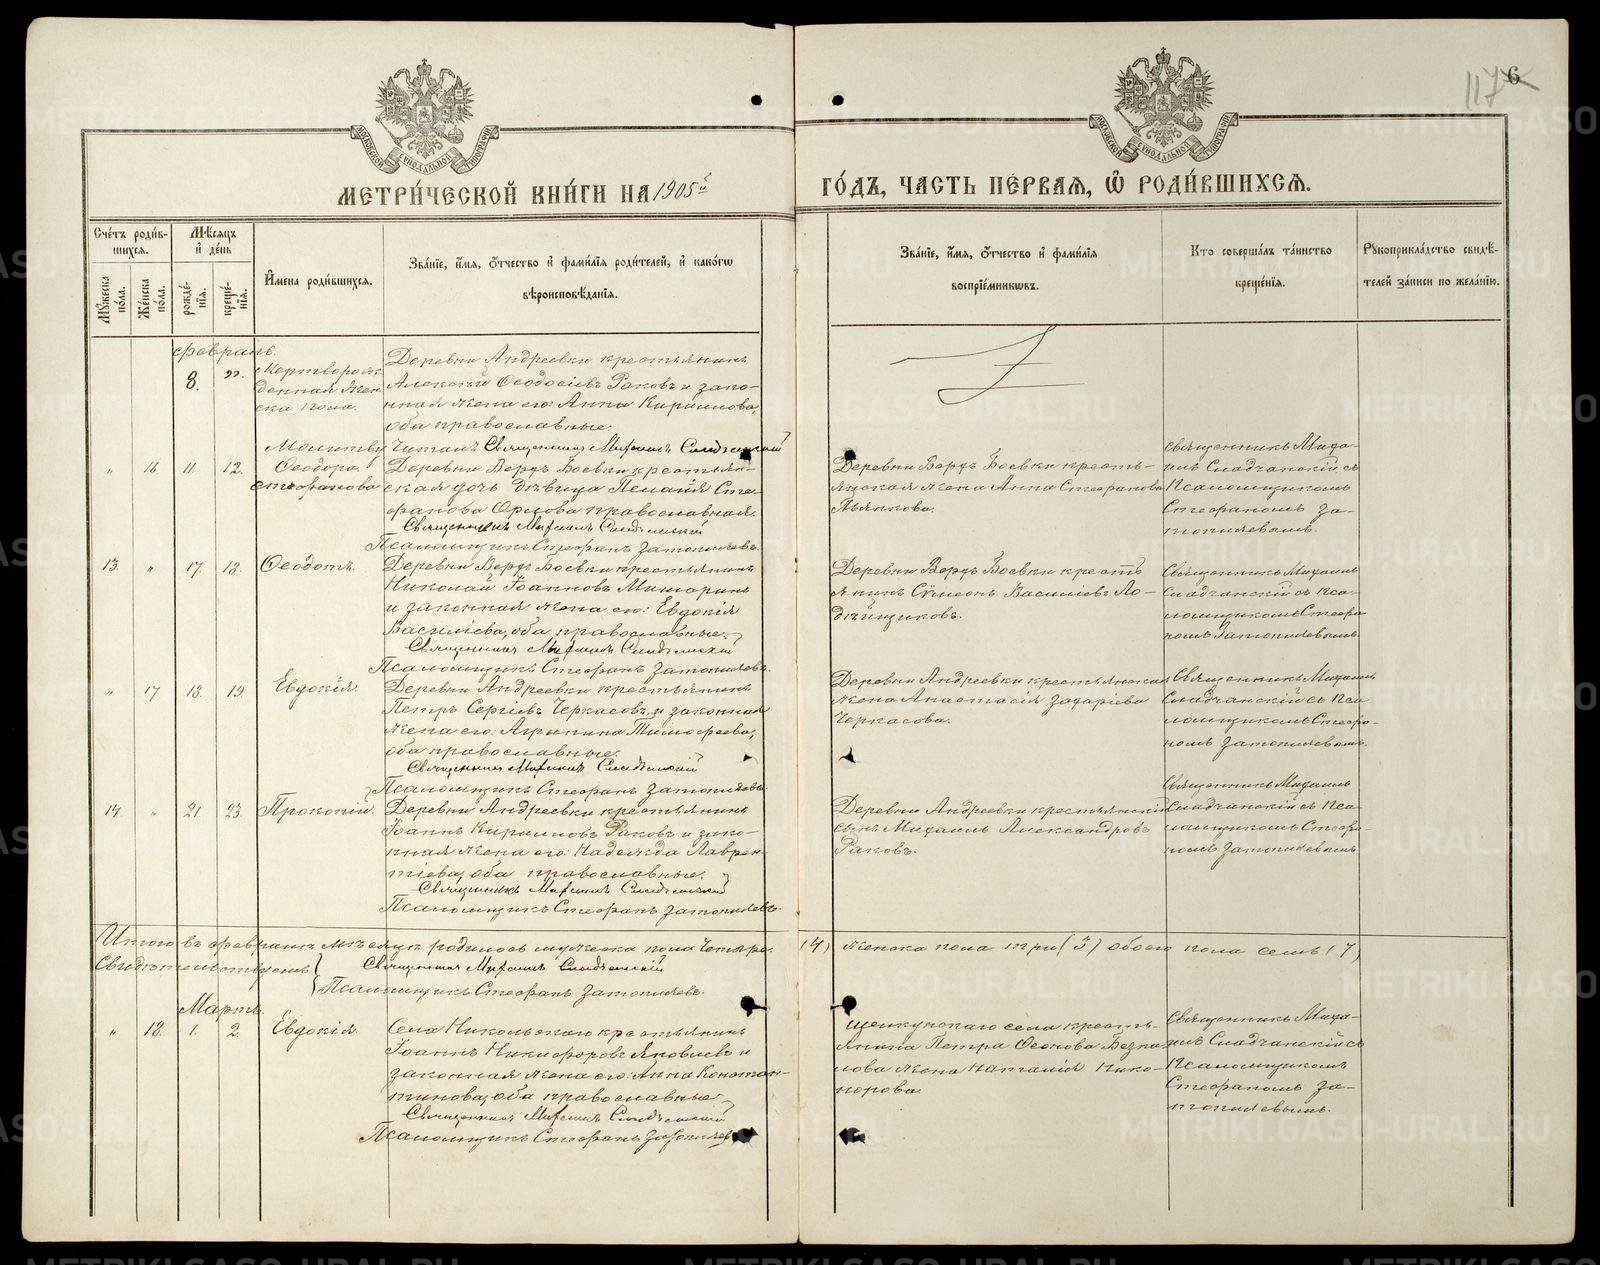 117
6
МОСКОВСКОЙ СѴНОДАЛЬНОЙ ТИПОГРАФІИ
МОСКОВСКОЙ СѴНОДАЛЬНОЙ ТИПОГРАФІИ
МЕТРИ́ЧЕСКОЙ КНИ́ГИ НА 1905й
ГО́ДЪ, ЧАСТЬ ПЕ́РВАЯ, Ѡ РОДИ́ВШИХСЯ.
Сче́тъ роди́в-
шихся.
Мѣ́сяцъ
и де́нь
Му́жеска по́ла.
Же́нска по́ла.
рожде́-
нія.
креще́-
нія.
И́мена роди́вшихся.
Зва́ніе, и́мя, о́тчество и фами́лія роди́телей, и како́гѡ
вѣроисповѣ́данія.
Зва́ніе, и́мя, о́тчество и фами́лія
воспріе́мниковъ.
Кто соверша́лъ та́инство
креще́нія.
Рукоприкла́дство свидѣ́-
телей за́писи по жела́нію.
февраль.
8. "
Мертворож-
денная жен-
ска пола.
Деревни Андреевки крестьянинъ
Алексѣй Ѳеодосіевъ Раковъ и зако-
нная жена его: Анна Кириллова,
оба православные.
Молитву читалъ Священникъ Михаилъ
" 16. 11. 12.
Ѳеодора
Стефанова
Деревни Верхъ Боевки крестьян-
ская дочь дѣвица Пелагія Сте-
фанова Орлова православная.
Священникъ Михаилъ
Псаломщикъ Стефанъ Затопляевъ.
Деревни Верхъ Боевки кресть-
янская жена Анна Стефанова
Пьянкова.
Священникъ Миха-
илъ съ
Псаломщикомъ
Стефаномъ За-
топляевымъ.
13. " 17. 18.
Ѳеодотъ.
Деревни Верхъ Боевки крестьянинъ
Николай Іоанновъ
и законная жена его: Евдокія
Василіева, оба православные.
Священникъ Михаилъ
Псаломщикъ Стефанъ Затопляевъ.
Деревни Верхъ Боевки кресть
янинъ Сѵмеонъ Василіевъ Ло-
дейщиковъ.
Священникъ Михаилъ
съ Пса-
ломщикомъ Стефа-
номъ Затопляевымъ.
" 17 18. 19.
Евдокія.
Деревни Андреевки крестьянинъ
Петръ Сергіевъ Черкасовъ и законная
жена его: Агрипина Тимофеева,
оба православные.
Священникъ Михаилъ
Псаломщикъ Стефанъ Затопляевъ.
Деревни Андреевки крестьянская
жена Анастасія Захаріева
Черкасова.
Священникъ Михаилъ
съ Пса-
ломщикомъ Стефа-
номъ Затопляевымъ.
14. " 21. 23.
Прокопій.
Деревни Андреевки крестьянинъ
Іоаннъ Кирилловъ Раковъ и зако-
нная жена его: Надежда Лаврен-
тіева, оба православные.
Священникъ Михаилъ
Псаломщикъ Стефанъ Затопляевъ.
Деревни Андреевки крестьянскій
сынъ Михаилъ Александровъ
Раковъ.
Священникъ Михаилъ
съ Пса-
ломщикомъ Стефа-
номъ Затопляевымъ.
Итого въ февралѣ мѣсяцѣ родилось мужеска пола четыре (4) женска пола три (3) обоего пола семь (7)
Свидѣтельствуемъ Священникъ Михаилъ
Псаломщикъ Стефанъ Затопляевъ.
Мартъ.
" 18. 1. 2.
Евдокія
Села Никольскаго крестьянинъ
Іоаннъ Никифоровъ Яковлевъ и
законная жена его: Анна Констан-
тинова, оба православные
Священникъ Михаилъ
Псаломщикъ Стефанъ Затопляевъ
Щелкунскаго села кресть-
янина Петра
жена Наталія Нико-
норова.
Священникъ Миха-
илъ съ
Псаломщикомъ
Стефаномъ За-
топляевымъ.
METRIKI.GASO-URAL.RU